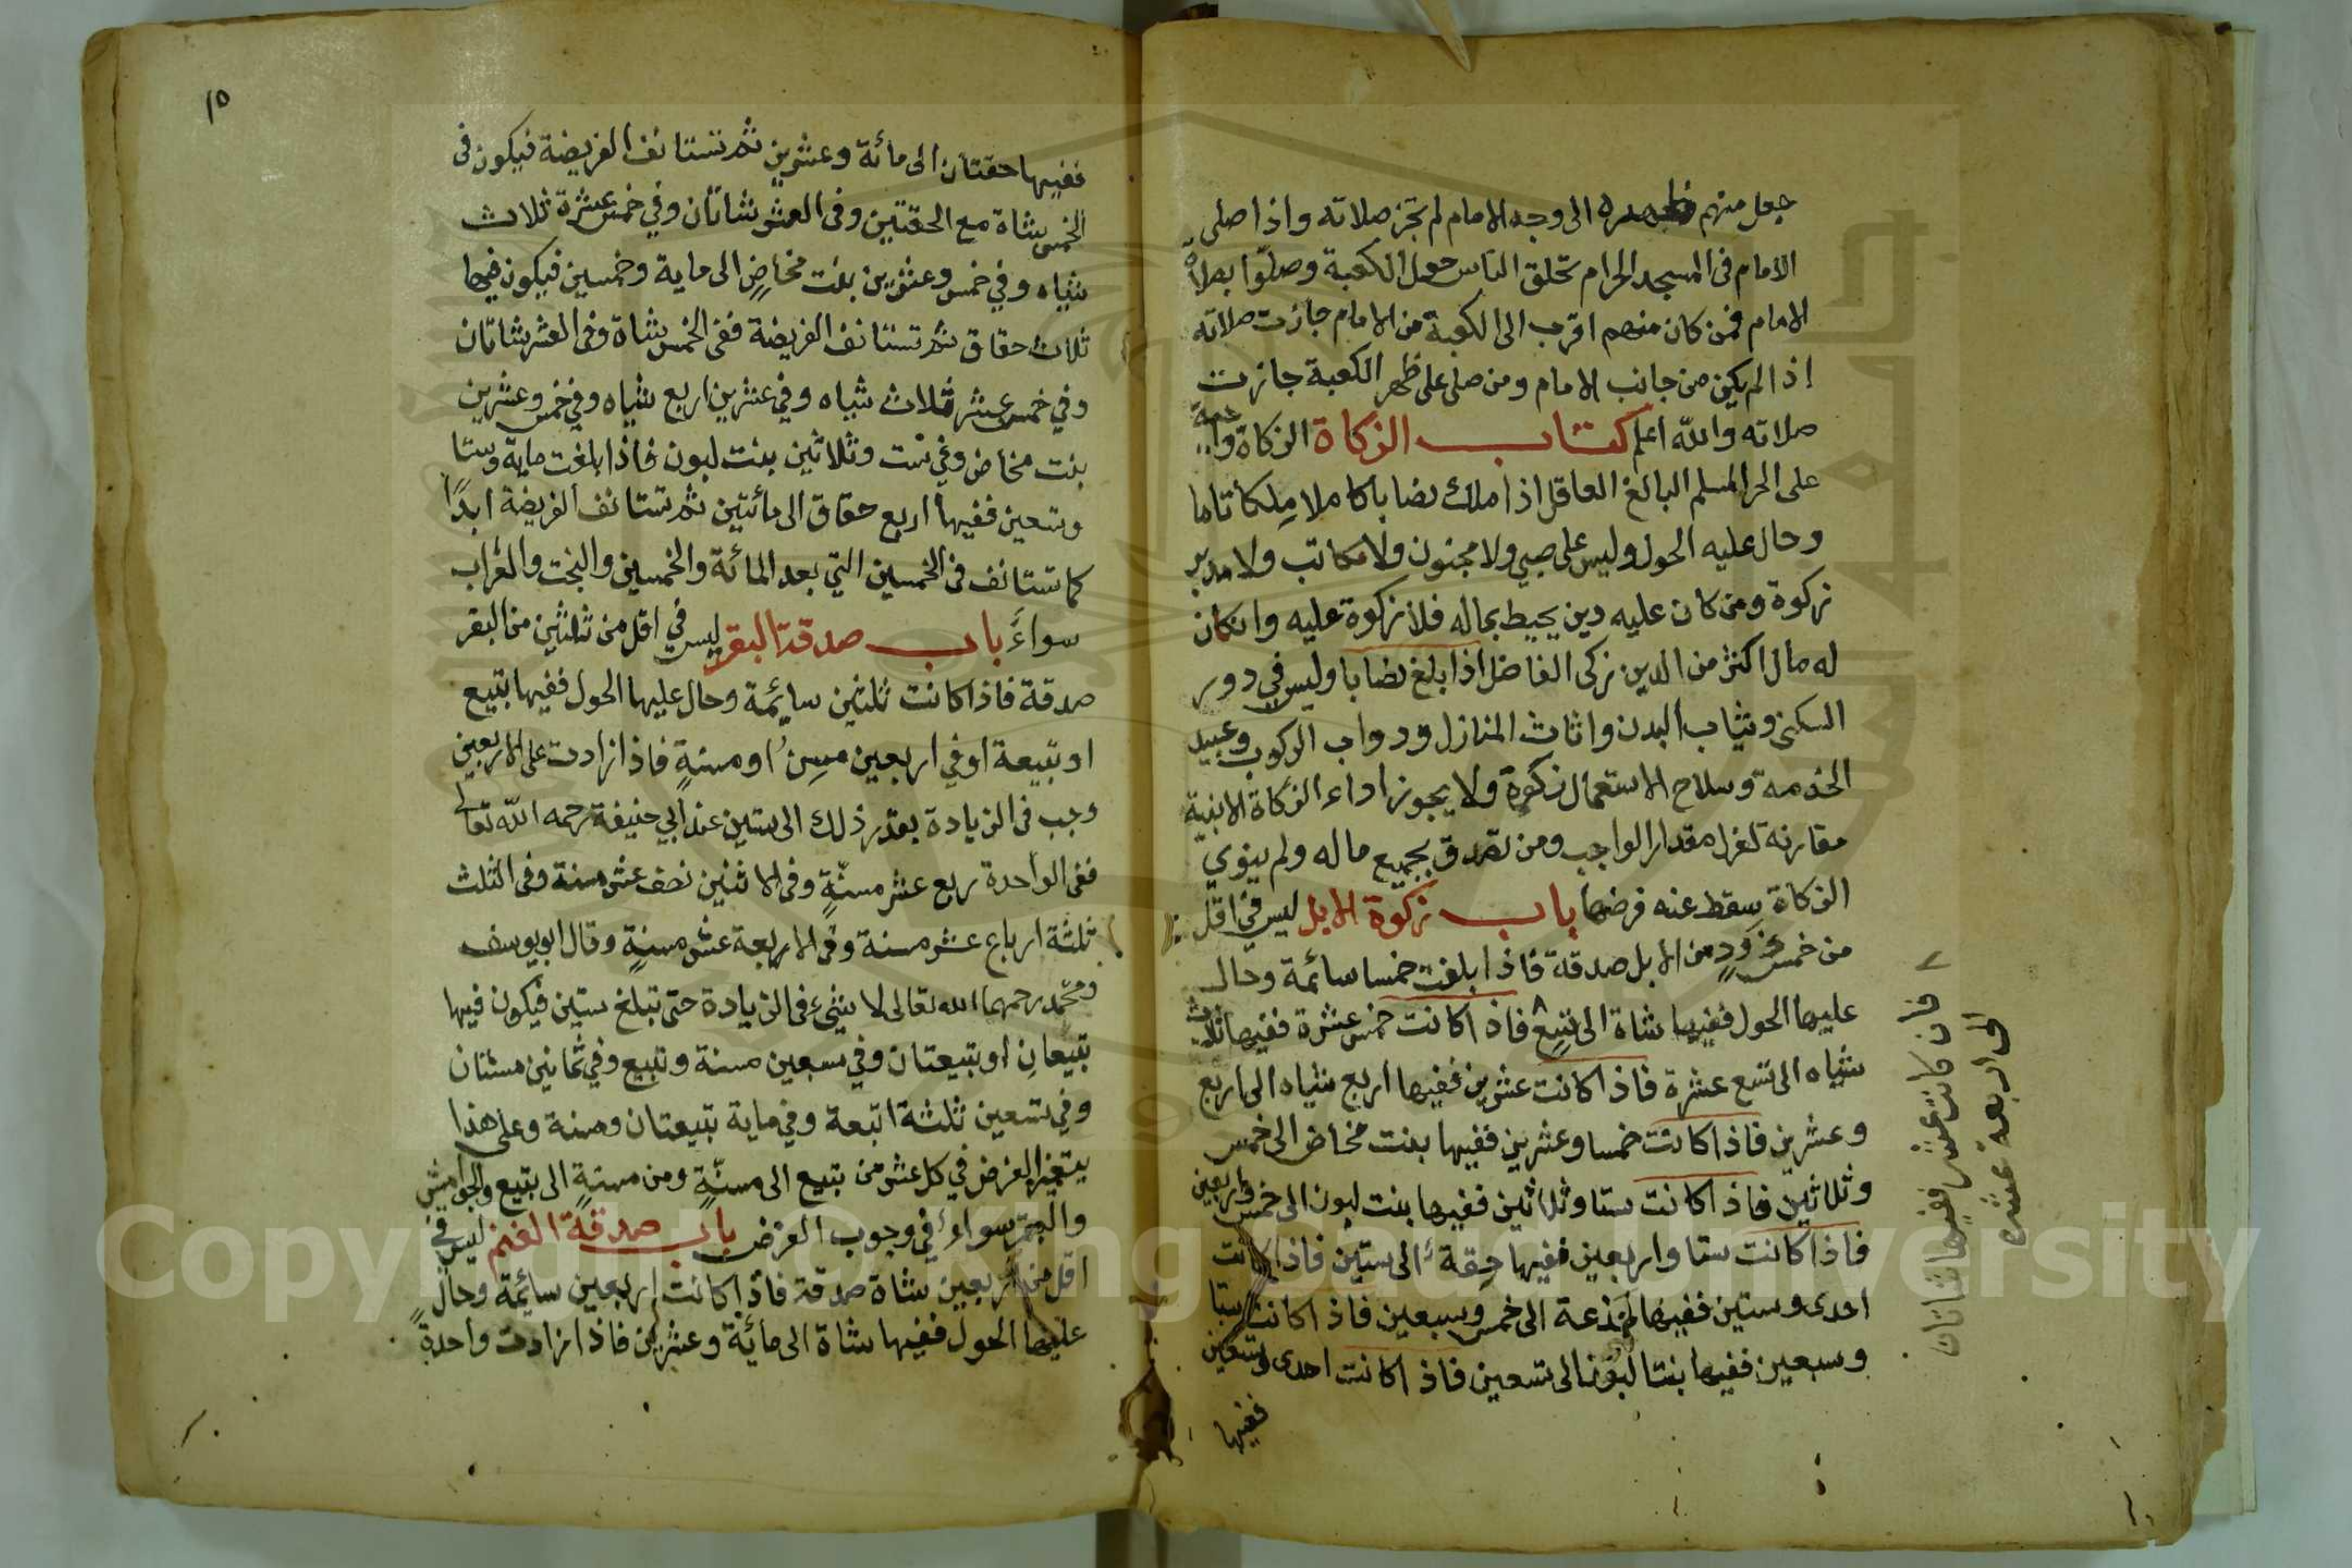 جعل منهم ظهره الى وجه الامام لم تجز صلاته واذا صلى
الامام فى المسجد الحرام تحلق الناس حول الكعبة وصلوا بصلاة
الامام فمن كان منهم اقرب الى الكعبة من الامام جازت صلاته
اذا لم يكن من جانب الامام ومن صلى على ظهر الكعبة جازت
صلاته والله اعلم كتاب الزكاة الزكاة واجبة
على الحر المسلم البالغ العاقل اذا ملك نصابا كاملا مِلكا تاما
وحال عليه الحول وليس على صبي ولا مجنون ولا مكاتب ولا مدبر
زكوة ومن كان عليه دين يحيط بماله فلا زكوة عليه وان كان
له مال اكثر من الدين زكى الفاضل اذا بلغ نصابا وليس في دور
السكنى وثياب البدن واثاث المنازل ودواب الركوب وعبيد
الخدمة وسلاح الاستعمال زكوة ولا يجوز اداء الزكاة الا بنية
مقارنة لعزل مقدار الواجب ومن تصدق بجميع ماله ولم ينوي
الزكاة سقط عنه فرضها باب زكوة الابل ليس في اقل
من خمس ذودٍ من الابل صدقة فاذا بلغت خمسا سائمة وحال
عليها الحول ففيها شاة الى تسع فاذا كانت خمس عشرة ففيها ثلاث
شياه الى تسع عشرة فاذا كانت عشرين ففيها اربع شياه الى اربع
وعشرين فاذا كانت خمسا وعشرين ففيها بنت مخاض الى خمس
وثلاثين فاذا كانت ستا وثلاثين ففيها بنت لبون الى خمس واربعين
فاذا كانت ستا واربعين ففيها حِقة الى ستين فاذا كانت
احدى وستين ففيها جذعة الى خمس وسبعين فاذا كانت ستا
وسبعين ففيها بنتا لبون الى تسعين فاذا كانت احدى وتسعين
ففيها
فان كانت عشر ففيها شاتان
الى اربعة عشره
١٥
ففيها حقتان الى مائة وعشرين ثم تستانف الفريضة فيكون فى
الخمس شاة مع الحقتين وفى العشر شاتان وفي خمس عشرة ثلاث
شياه وفي خمس وعشرين بنت مخاضٍ الى ماية وخمسين فيكون فيها
ثلاث حقاق ثم تستانف الفريضة ففى الخمس شاة وفى العشر شاتان
وفي خمس عشر ثلاث شياه وفي عشرين اربع شياه وفي خمس وعشرين
بنت مخاض وفي ست وثلاثين بنت لبون فاذا بلغت ماية وستا
وتسعين ففيها اربع حقاق الى مائتين ثم تستانف الفريضة ابدًا
كما تستانف فى الخمسين التي بعد المائة والخمسين والبخت والعراب
سواءً باب صدقة البقر ليس في اقل من ثلثين من البقر
صدقة فاذا كانت ثلثين سايمة وحال عليها الحول ففيها تبيع
او تبيعة او في اربعين مسِن او مسنةٍ فاذا زادت على الاربعين
وجب فى الزيادة بقدر ذلك الى ستين عند ابي حنيفة رحمه الله تعالى
ففى الواحدة ربع عشر مسنّةٍ وفى الاثنين نصف عشر مسنة وفى الثلث
ثلثة ارباع عشر مسنة وفى الاربعة عشر مسنةٍ وقال ابو يوسف
ومحمد رحمهما الله تعالى لا شيء فى الزيادة حتى تبلغ ستين فيكون فيها
تبيعانِ او تبيعتان وفي سبعين مسنة وتبيع وفي ثمانين مسنتان
وفي تسعين ثلثة اتبعة وفي ماية تبيعتان ومسنة وعلى هذا
يتغير الفرض في كل عشر من تبيع الى مسنّةٍ ومن مسنةٍ الى تبيع والجواميش
والبقر سواء في وجوب الفرض باب صدقة الغنم ليس في
اقل من اربعين شاة صدقة فاذا كانت اربعين سايمة وحال
عليها الحول ففيها شاة الى مائة وعشرين فاذا زادت واحدةٍ
Copyright © King Saud University